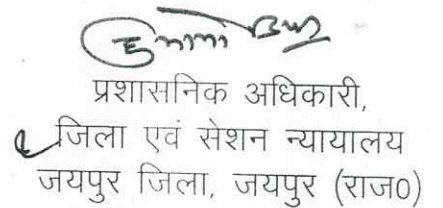 प्रशासनिक अधिकारी,
जिला एवं सेशन न्यायालय
जयपुर जिला, जयपुर (राज0)